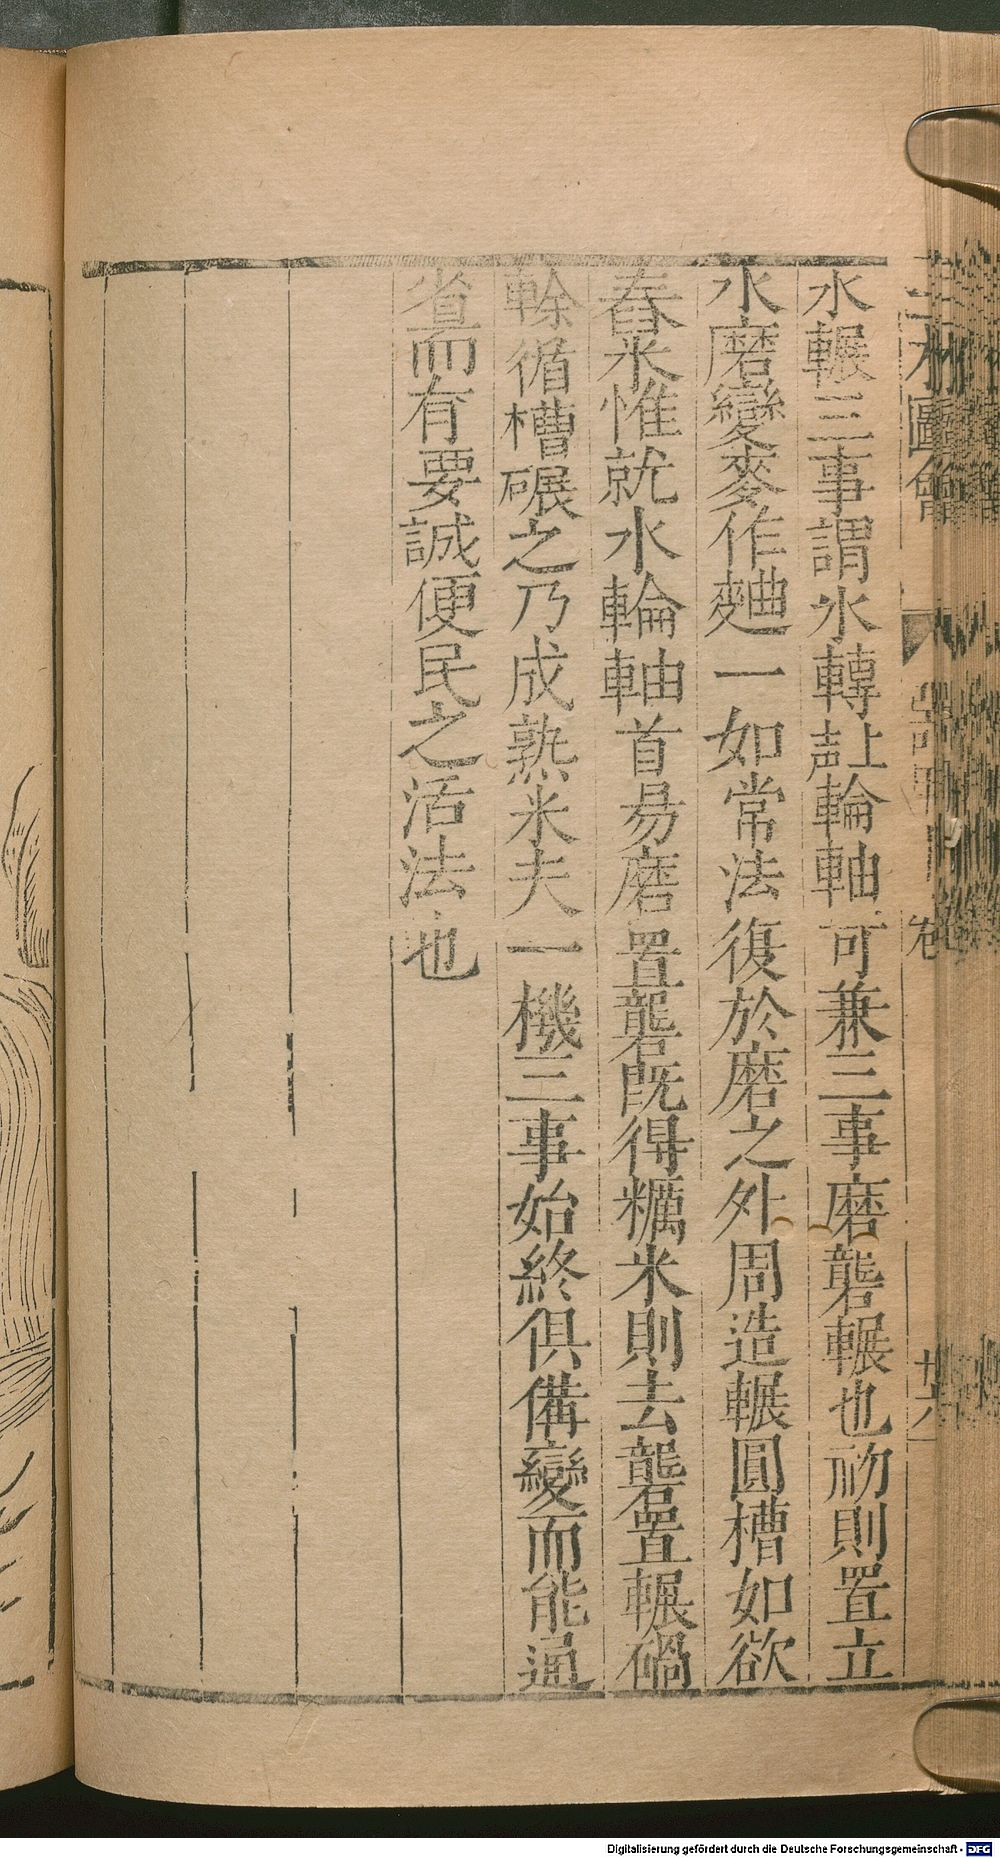 三才圖會
卷
廿六
水輾三事謂水轉輪軸可兼三事磨礱輾也初則置立
水磨變麥作麵一如常法復於磨之外周造輾圓槽如欲
舂米惟就水輪軸首易磨置礱既得糲米則去礱置輾碢
榦循槽碾之乃成熟米夫一機三事始終俱備變而能通
省而有要誠便民之活法也
Digitalisierung gefördert durch die Deutsche Forschungsgemeinschaft - DFG